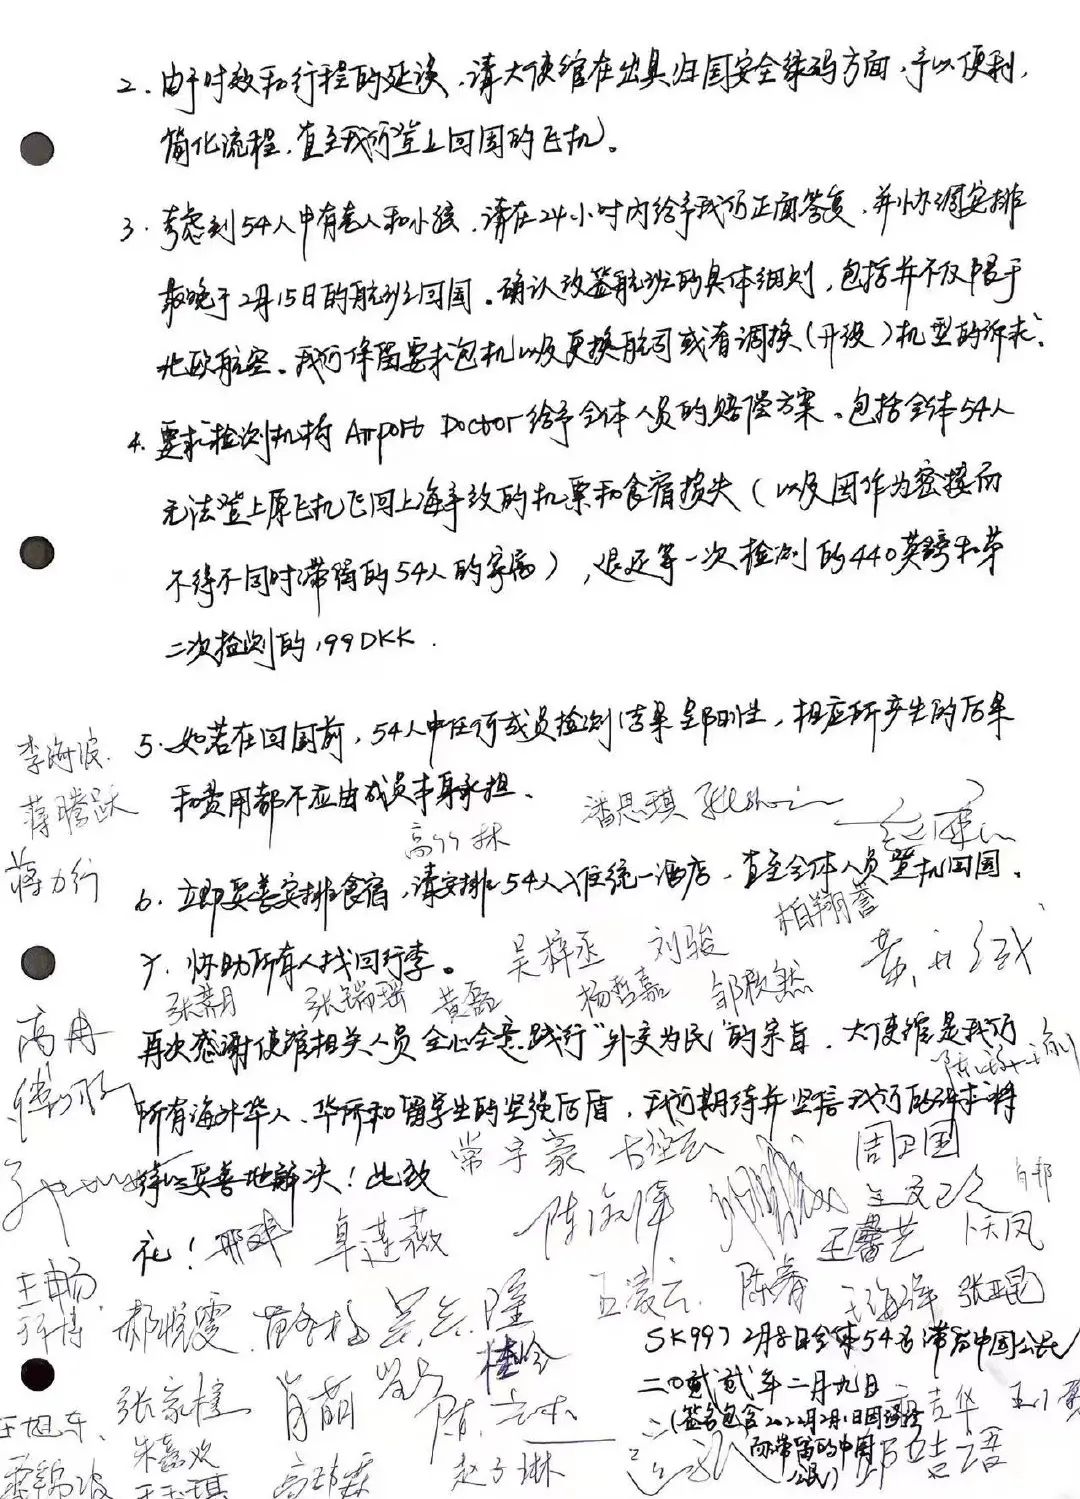 2. 由于时效和行程的延误，请大使馆在出具归国安全绿码方面，予以便利，
简化流程，直至我们登上回国的飞机。
3. 考虑到54人中有老人和小孩，请在24小时内给予我们正面答复，并协调安排
最晚于2月15日的航班回国。确认改签航班的具体细则，包括并不仅限于
北欧航空。我们保留要求包机以及更换航司或者调换（升级）机型的诉求。
4. 要求检测机构 Airport Doctor 给予全体人员的赔偿方案。包括全体54人
无法登上原飞机飞回上海导致的机票和食宿损失（以及因作为密接而
不得不同时滞留的54人的家属），退还第一次检测的440英镑和第
二次检测的199DKK.
5. 如若在回国前，54人中任何成员检测结果呈阳性，相应所产生的后果
李海波
和费用都不应由成员本身承担。
蒋腾跃
潘思琪
高竹林
蒋力行
6. 立即妥善安排食宿，请安排54人入住统一酒店，直至全体人员登机回国。
柏翔誉
7. 协助所有人找回行李。
吴梓丞 刘骏
张慕月 张瑞瑶 黄磊 杨哲嘉 邹欣然
高冉
再次感谢使馆相关人员全心全意践行“外交为民”的宗旨，大使馆是我们
所有海外华人、华侨和留学生的坚强后盾，我们期待并坚信我们的诉求将
常宇豪 周卫国
得以妥善地解决！此致
礼！ 卓莲薇
王馨艺 卜天凤
王畅 孟凌云 陈睿 张亚昆
郝悦雯
SK997 2月8日全体54名滞留中国公民
桂吟
二〇贰贰年二月九日
张家榿 肖萌
（签名包含2022年2月1日因密接
而滞留的中国
公民）
王旭东
朱鑫欢 赵子琳